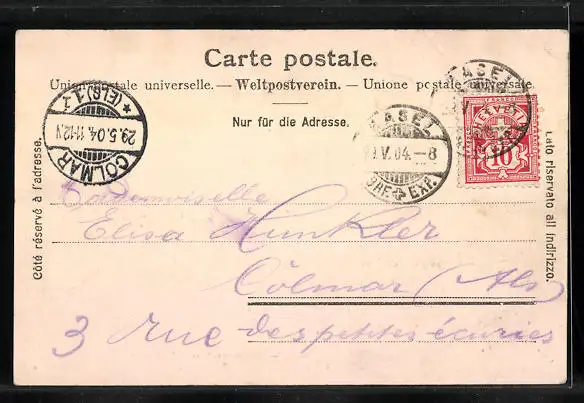 Carte postale.
Union postale universelle. — Weltpostverein. — Unione postale universale
Nur für die Adresse.
Côté réservé à l'adresse.
Lato riservato all indirizzo.
COLMAR
(ELS) 1
29.5.04.11-12N
BASEL
V.04.-8
BRF. EXP.
BASEL
FRANCO
HELVETIA
10
Mademoiselle
Elisa Hunkler
Colmar (Als)
3 rue des petites écuries